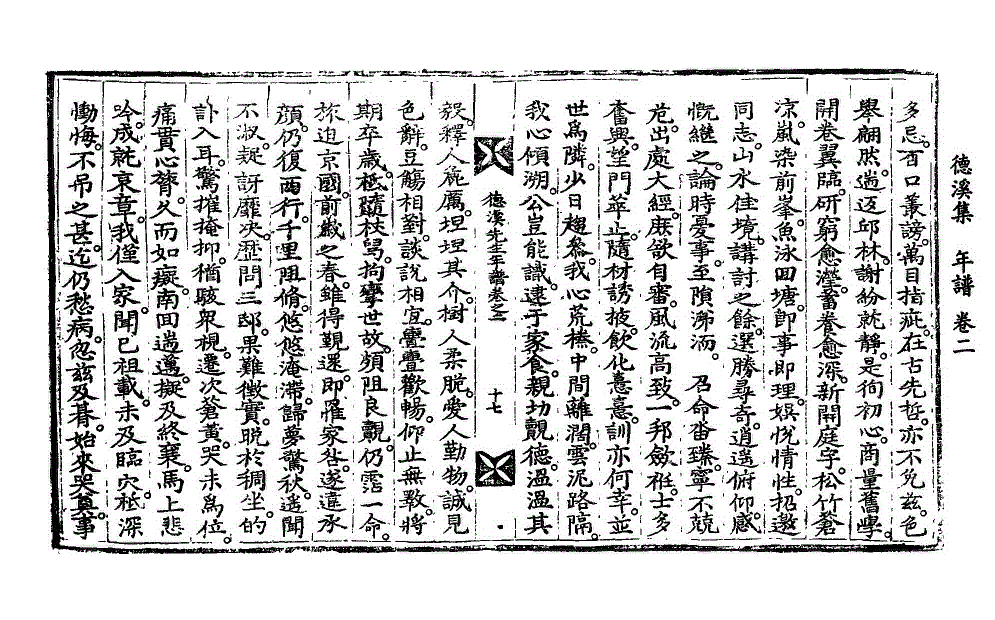 德溪集 年譜 卷二
多忌。百口叢謗。萬目揩疵。在古先哲。亦不免玆。色
擧翩然。逍遙邱林。謝紛就靜。是徇初心。商量舊學。
開卷翼臨。硏窮愈瀅。蓄養愈深。新開庭宇。松竹蒼
凉。嵐染前峯。魚泳回塘。卽事卽理。娛悅情性。招邀
同志。山水佳境。講討之餘。選勝尋奇。逍遙俯仰。感
慨繼之。論時憂事。至隕涕洏。 召命沓臻。寧不兢
尨。出處大經。庶欲自審。風流高致。一邦斂袵。士多
奮興。望門萃止。隨材誘掖。飮化憙憙。訓亦何幸。並
世爲隣。少日趨參。我心荒榛。中間離濶。雲泥路隔。
我心傾溯。公豈能識。逮于家食。親切觀德。溫溫其
德溪先生年譜卷之二 十七
毅。釋人麁厲。坦坦其介。樹人柔脆。愛人勤物。誠見
色辭。豆觴相對。談說相宜。亹亹歡暢。仰止無斁。將
期卒歲。祗隨杖舃。拘攣世故。頻阻良覿。仍霑一命。
旅迫京國。前歲之春。雖得覲還。卽罹家咎。遂違承
顔。仍復西行。千里阻脩。悠悠淹滯。歸夢驚秋。遙聞
不淑。疑訝靡决。歷問三邸。果難徵實。晩於稠坐。的
訃入耳。驚摧掩抑。猶駭衆視。還次蒼黃。哭未爲位。
痛貫心膂。久而如癡。南回遄邁。擬及終襄。馬上悲
吟。成就哀章。我僅入家。聞已祖載。未及臨穴。祗深
慟悔。不吊之甚。迄仍愁病。忽玆及朞。始來哭奠。事